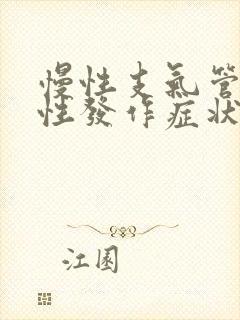 慢性支氣管
性發作症狀
江園